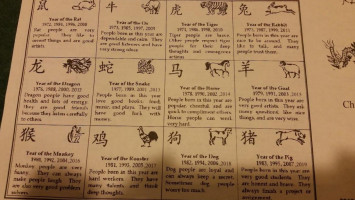 鼠
Year of the Rat
1972, 1984, 1996, 2008
Rat people are very
popular. They like to
invent things and are good
artists.
牛
Year of the Ox
1973, 1985, 1997, 2009
People born in this year are
dependable and calm. They
are good listeners and have
very strong ideas.
虎
Year of the Tiger
1974, 1986, 1998, 2010
Tiger people are brave.
Other people respect tiger
people for their deep
thoughts and courageous
actions.
兔
Year of the Rabbit
1975, 1987, 1999, 2011
People born in this year are
nice to be around. They
like to talk, and many
people trust them.
龙
Year of the Dragon
1976, 1988, 2000, 2012
Dragon people have good
health and lots of energy.
They are good friends
because they listen carefully
to others.
蛇
Year of the Snake
1977, 1989, 2001, 2013
People born in this year
love good books, food,
music, and plays. They will
have good luck with
money.
马
Year of the Horse
1978, 1990, 2002, 2014
People born in this year are
popular, cheerful, and are
quick to compliment others.
Horse people can work
very hard.
羊
Year of the Goat
1979, 1991, 2003, 2015
People born in this year are
very good artists. They ask
many questions, like nice
things, and are very wise.
猴
Year of the Monkey
1980, 1992, 2004, 2016
Monkey people are very
funny. They can always
make people laugh. They
are also very good problem
solvers.
鸡
Year of the Rooster
1981, 1993, 2005, 2017
People born in this year are
hard workers. They have
many talents and think
deep thoughts.
狗
Year of the Dog
1982, 1994, 2006, 2018
Dog people are loyal and
can always keep a secret.
Sometimes dog people
worry too much.
猪
Year of the Pig
1983, 1995, 2007, 2019
People born in this year are
very good students. They
are honest and brave. They
always finish a project or
assignment.